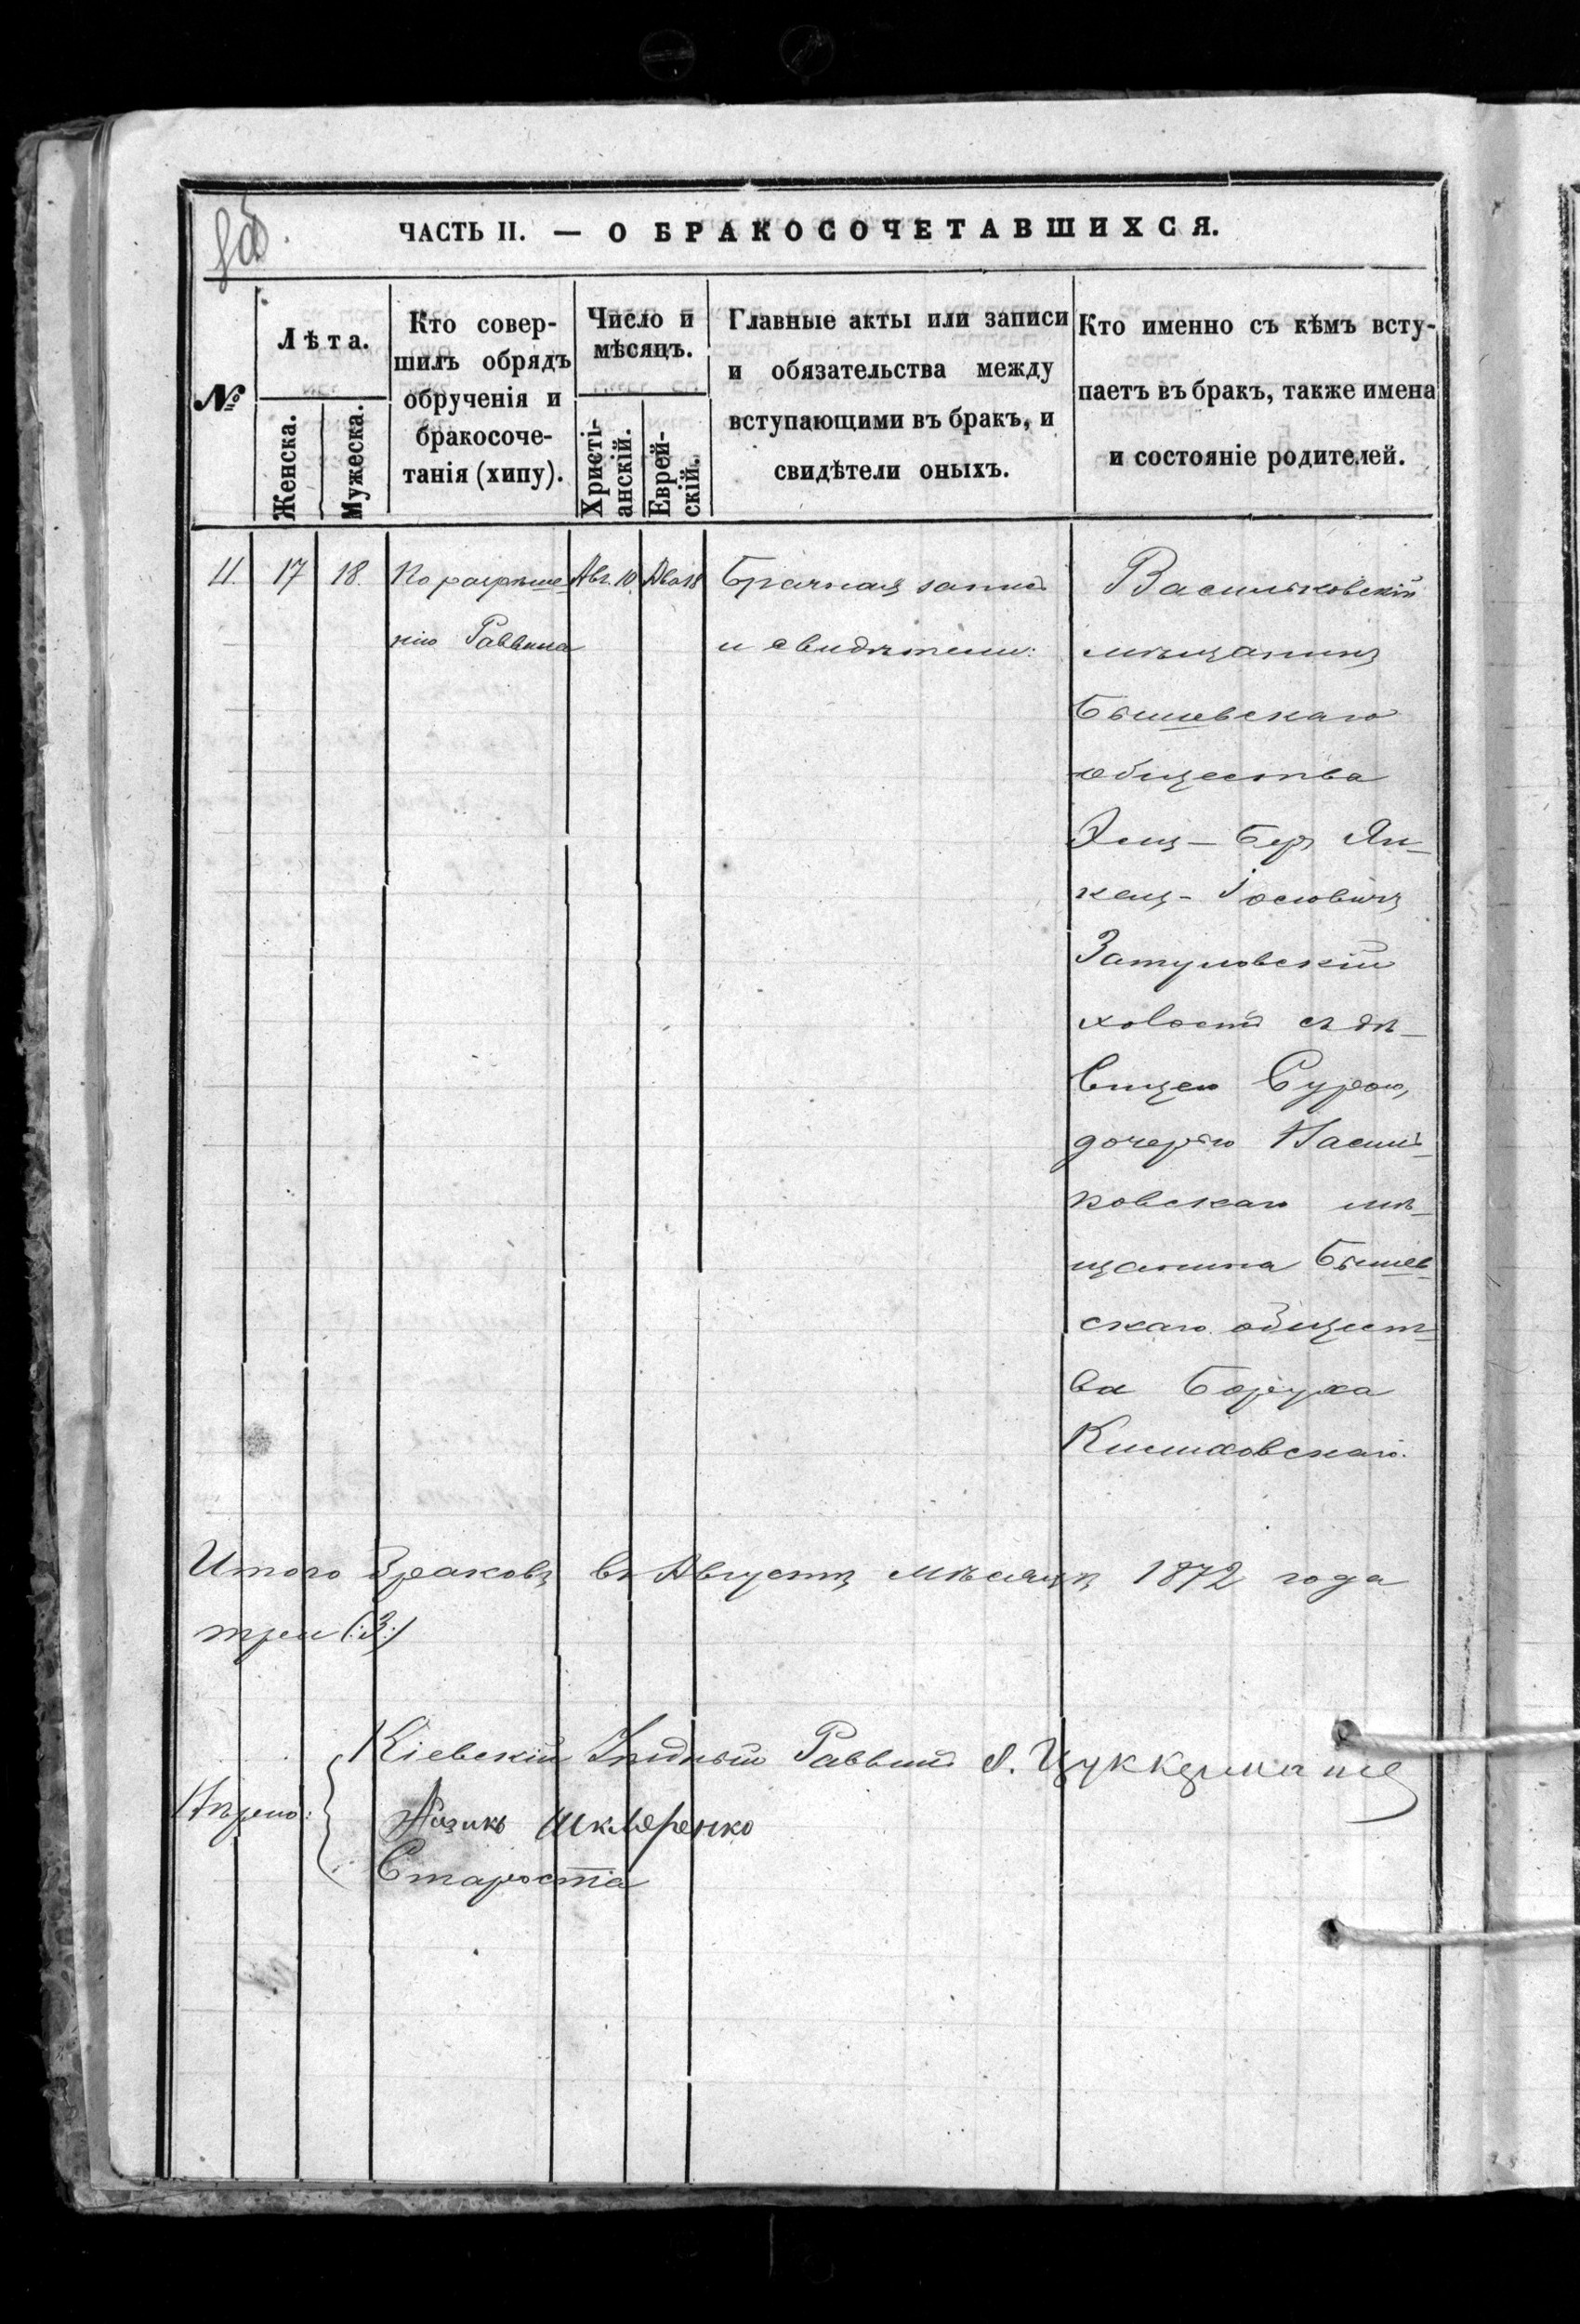 ЧАСТЬ II. — О БРАКОСОЧЕТАВШИХСЯ.
№
Лѣта.
Женска.
Мужеска.
Кто совер-
шилъ обрядъ
обрученія и
бракосоче-
танія (хипу).
Число и
мѣсяцъ.
Христі-
анскій.
Еврей-
скій.
Главные акты или записи
и обязательства между
вступающими въ бракъ, и
свидѣтели оныхъ.
Кто именно съ кѣмъ всту-
паетъ въ бракъ, также имена
и состояніе родителей.
11 17 18. По разрѣше-
нію Раввина
Авг. 10.
18
Брачная запись
и свидѣтели:
Васильковскій
мѣщанинъ
Бышевскаго
общества
Бер Ян-
кель-Іосіовичъ
Затуловскій
холостъ съ дѣ-
вицею Сурою,
дочерью Василь-
ковскаго мѣ-
щанина Бышев-
скаго общест-
ва Боруха
Кишиловскаго.
Итого браковъ въ Августѣ мѣсяцѣ 1872 года
три (:3:)
Вѣрно:
Кіевскій Уѣздный Раввинъ А. Цуккерманъ
Айзикъ Шкляренко
Староста